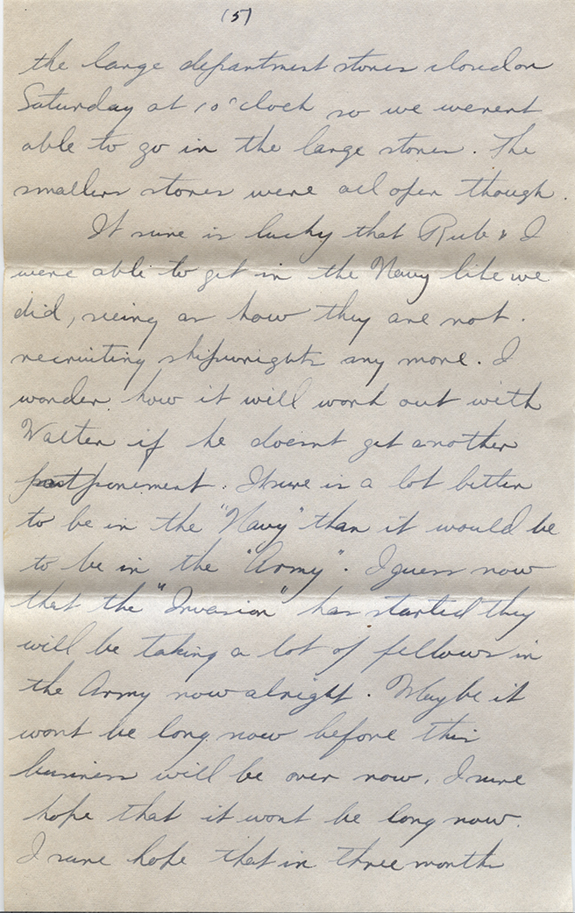 (5)
the large department stores closed on
Saturday at 1 o'clock so we werent
able to go in the large stores. The
smallers stores were all open though.
It sure is lucky that Rub & I
were able to get in the Navy like we
did, seeing as how they are not.
recruiting shipwrights any more. I
wonder how it will work out with
Walter if he doesnt get another
postponement. It sure is a lot better
to be in the "Navy" than it would be
to be in the "Army". I guess now
that the "Invasion" has started they
will be taking a lot of fellows in
the Army now alright. Maybe it
wont be long now before this
business will be over now. I sure
hope that it wont be long now.
I sure hope that in three month